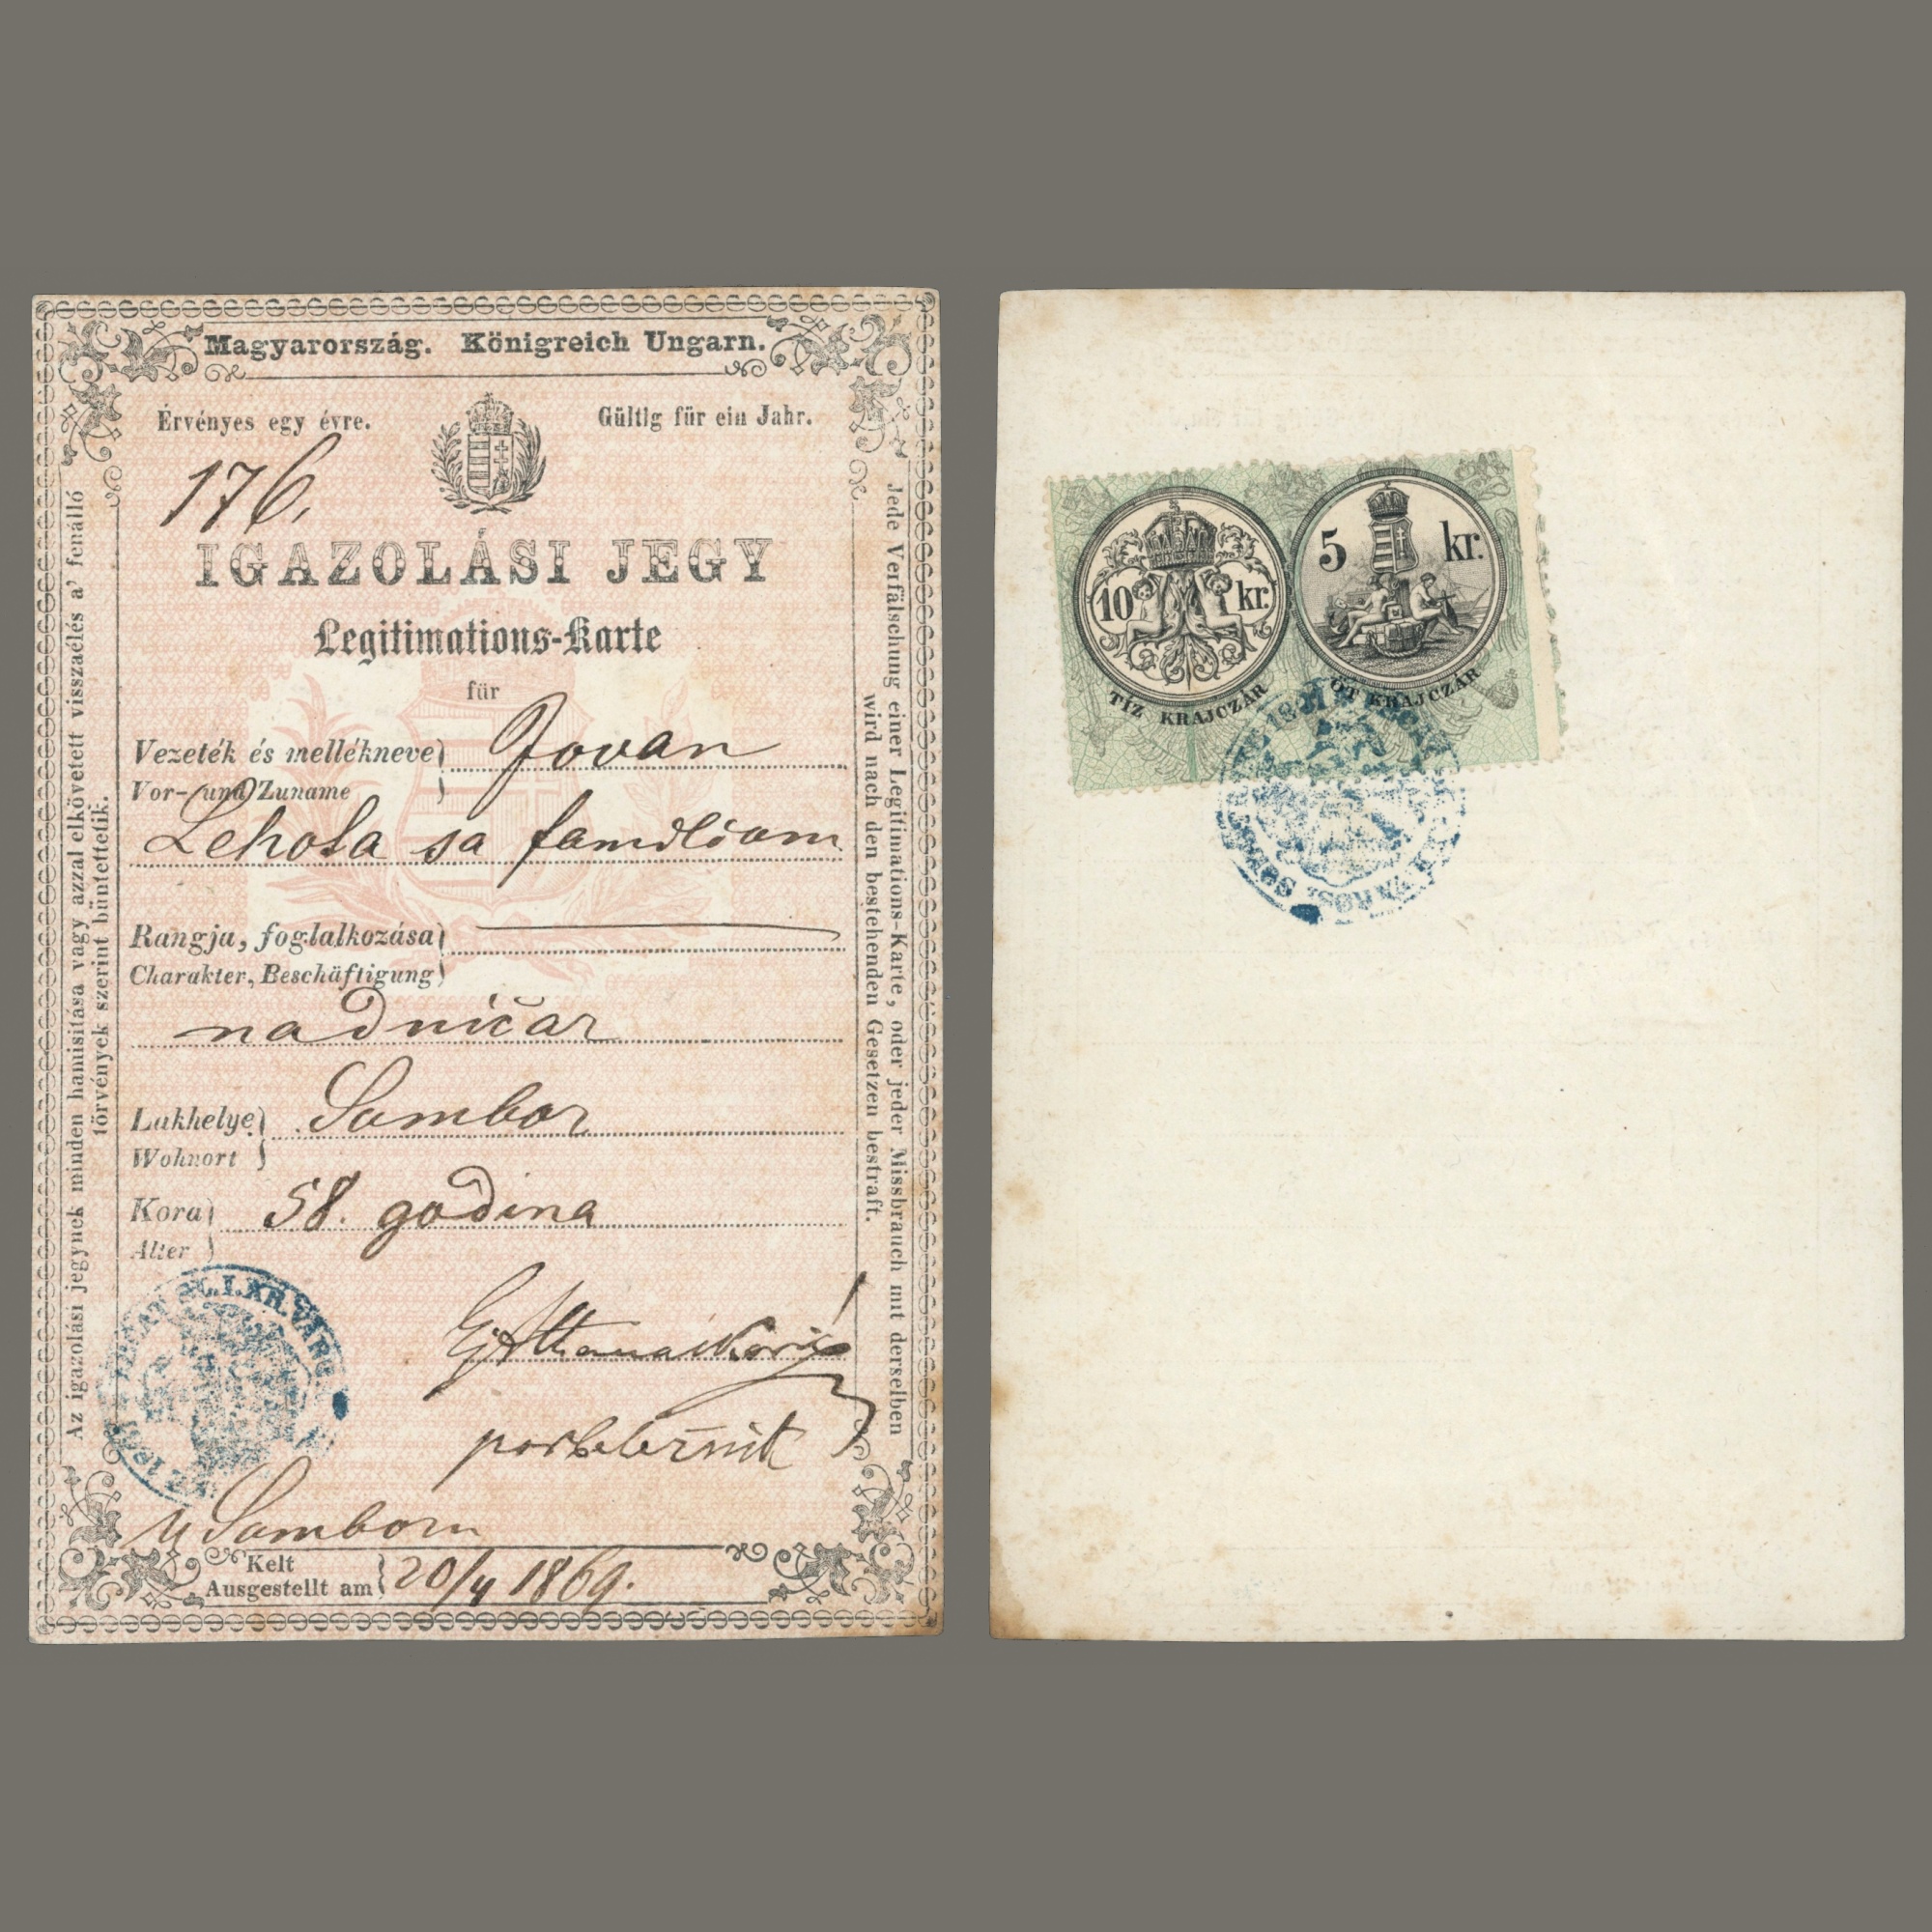 Magyarország. Königreich Ungarn.
Érvényes egy évre. Gültig für ein Jahr.
176.
IGAZOLÁSI JEGY
Legitimations-Karte
für
Vezeték és mellékneve Jovan
Vor- und Zuname
Lehota sa familiom
Rangja, foglalkozása
Charakter, Beschäftigung
nadničar
Lakhelye Sombor
Wohnort
Kora 58. godina
Alter
u Somboru
Kelt
Ausgestellt am 20/4 1869.
Az igazolási jegynek minden hamisitása vagy azzal elkövetett visszaélés a' fenálló
törvények szerint büntettetik.
Jede Verfälschung einer Legitimations-Karte, oder jeder Missbrauch mit derselben
wird nach den bestehenden Gesetzen bestraft.
10 kr.
TÍZ KRAJCZÁR
5 kr.
ÖT KRAJCZÁR